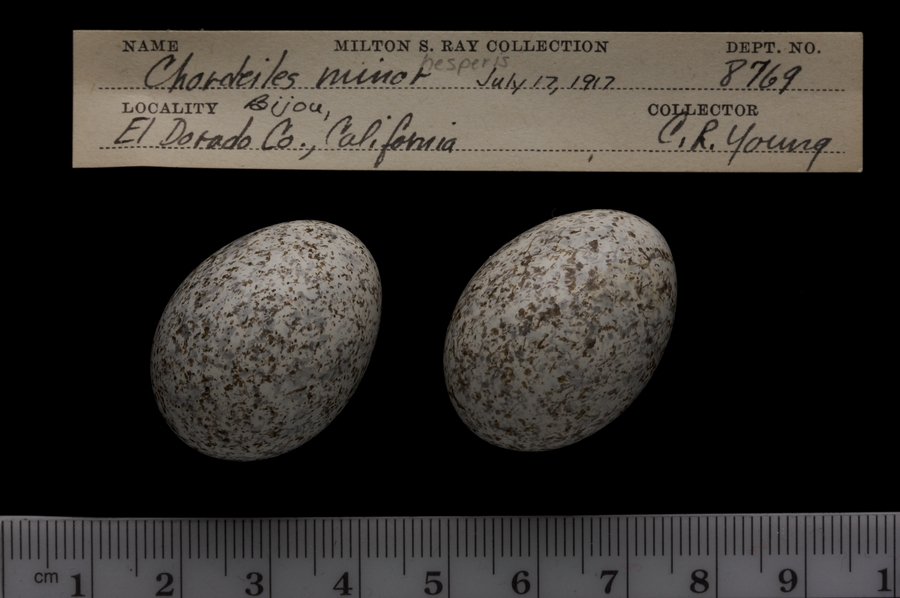 NAME MILTON S. RAY COLLECTION DEPT. NO.
Chordeiles minor hesperis July 17, 1917 8769
LOCALITY Bijou, COLLECTOR
El Dorado Co., California C. R. Young
cm 1 2 3 4 5 6 7 8 9 1